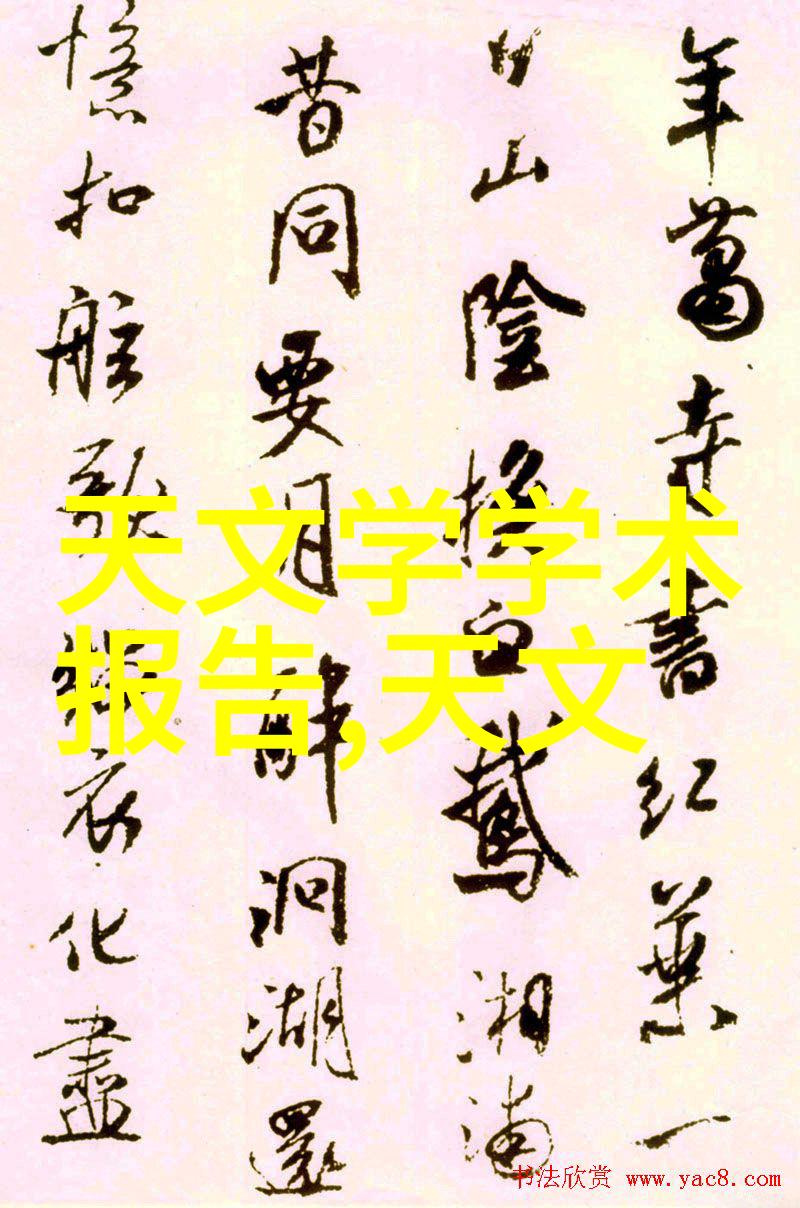 年蕭寺書紅葉一
日山陰換白鵞湘浦
昔同要月醉洞湖還
憶扣舷歌緇衣化盡
天文学学术
报告,天文
书法欣赏 www.yac8.com